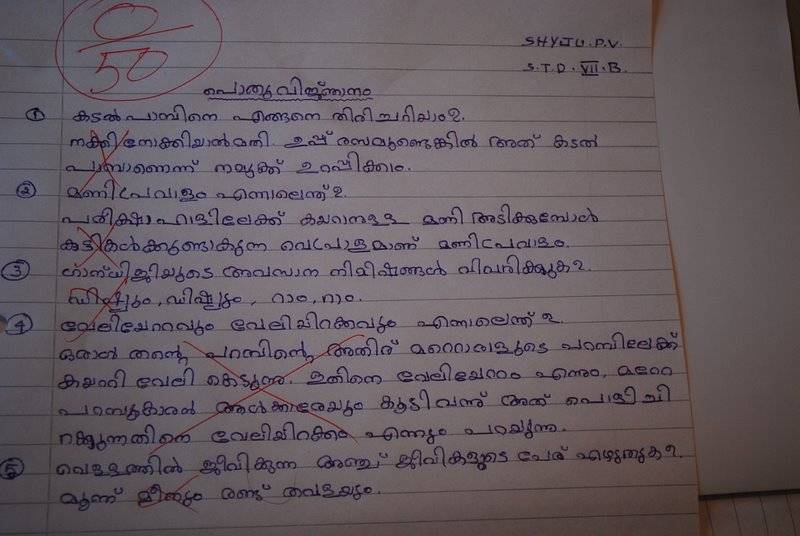 0/50
SHYJU.P.V.
S.T.D. VII.B.
പൊതുവിജ്ഞാനം
1 കടൽപാമ്പിനെ എങ്ങനെ തിരിച്ചറിയാം?
നക്കി നോക്കിയാൽമതി. ഉപ്പ് രസമുണ്ടെങ്കിൽ അത് കടൽ
പാമ്പാണെന്ന് നമുക്ക് ഉറപ്പിക്കാം.
2 മണിപ്രവാളം എന്നാലെന്ത്?
പരീക്ഷാഹാളിലേക്ക് കയറാനുള്ള മണി അടിക്കുമ്പോൾ
കുട്ടികൾക്കുണ്ടാകുന്ന വെപ്രാളമാണ് മണിപ്രവാളം.
3 ഗാന്ധിജിയുടെ അവസാന നിമിഷങ്ങൾ വിവരിക്കുക?
ഡിഷ്ഷും, ഡിഷ്ഷും, റാം, റാം.
4 വേലിയേറ്റവും വേലിയിറക്കവും എന്നാലെന്ത്?
ഒരാൾ തന്റെ പറമ്പിന്റെ അതിര് മറ്റൊരാളുടെ പറമ്പിലേക്ക്
കയററി വേലി കെട്ടുന്നു. ഇതിനെ വേലിയേററം എന്നും, മറ്റേ
പറമ്പുകാരൻ ആൾക്കാരേയും കൂട്ടിവന്ന് അത് പൊളിച്ചി
റക്കുന്നതിനെ വേലിയിറക്കം എന്നും പറയുന്നു.
5 വെള്ളത്തിൽ ജീവിക്കുന്ന അഞ്ച് ജീവികളുടെ പേര് എഴുതുക?
മൂന്ന് മീനും രണ്ട് തവളയും.